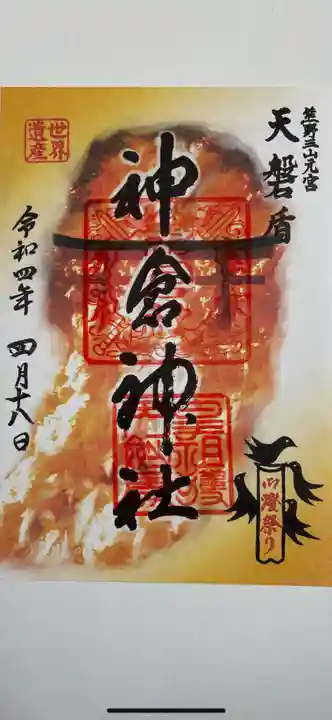 熊野三山元宮
天磐盾
世界
遺産
神倉神社
令和四年 四月十八日
御燈祭り